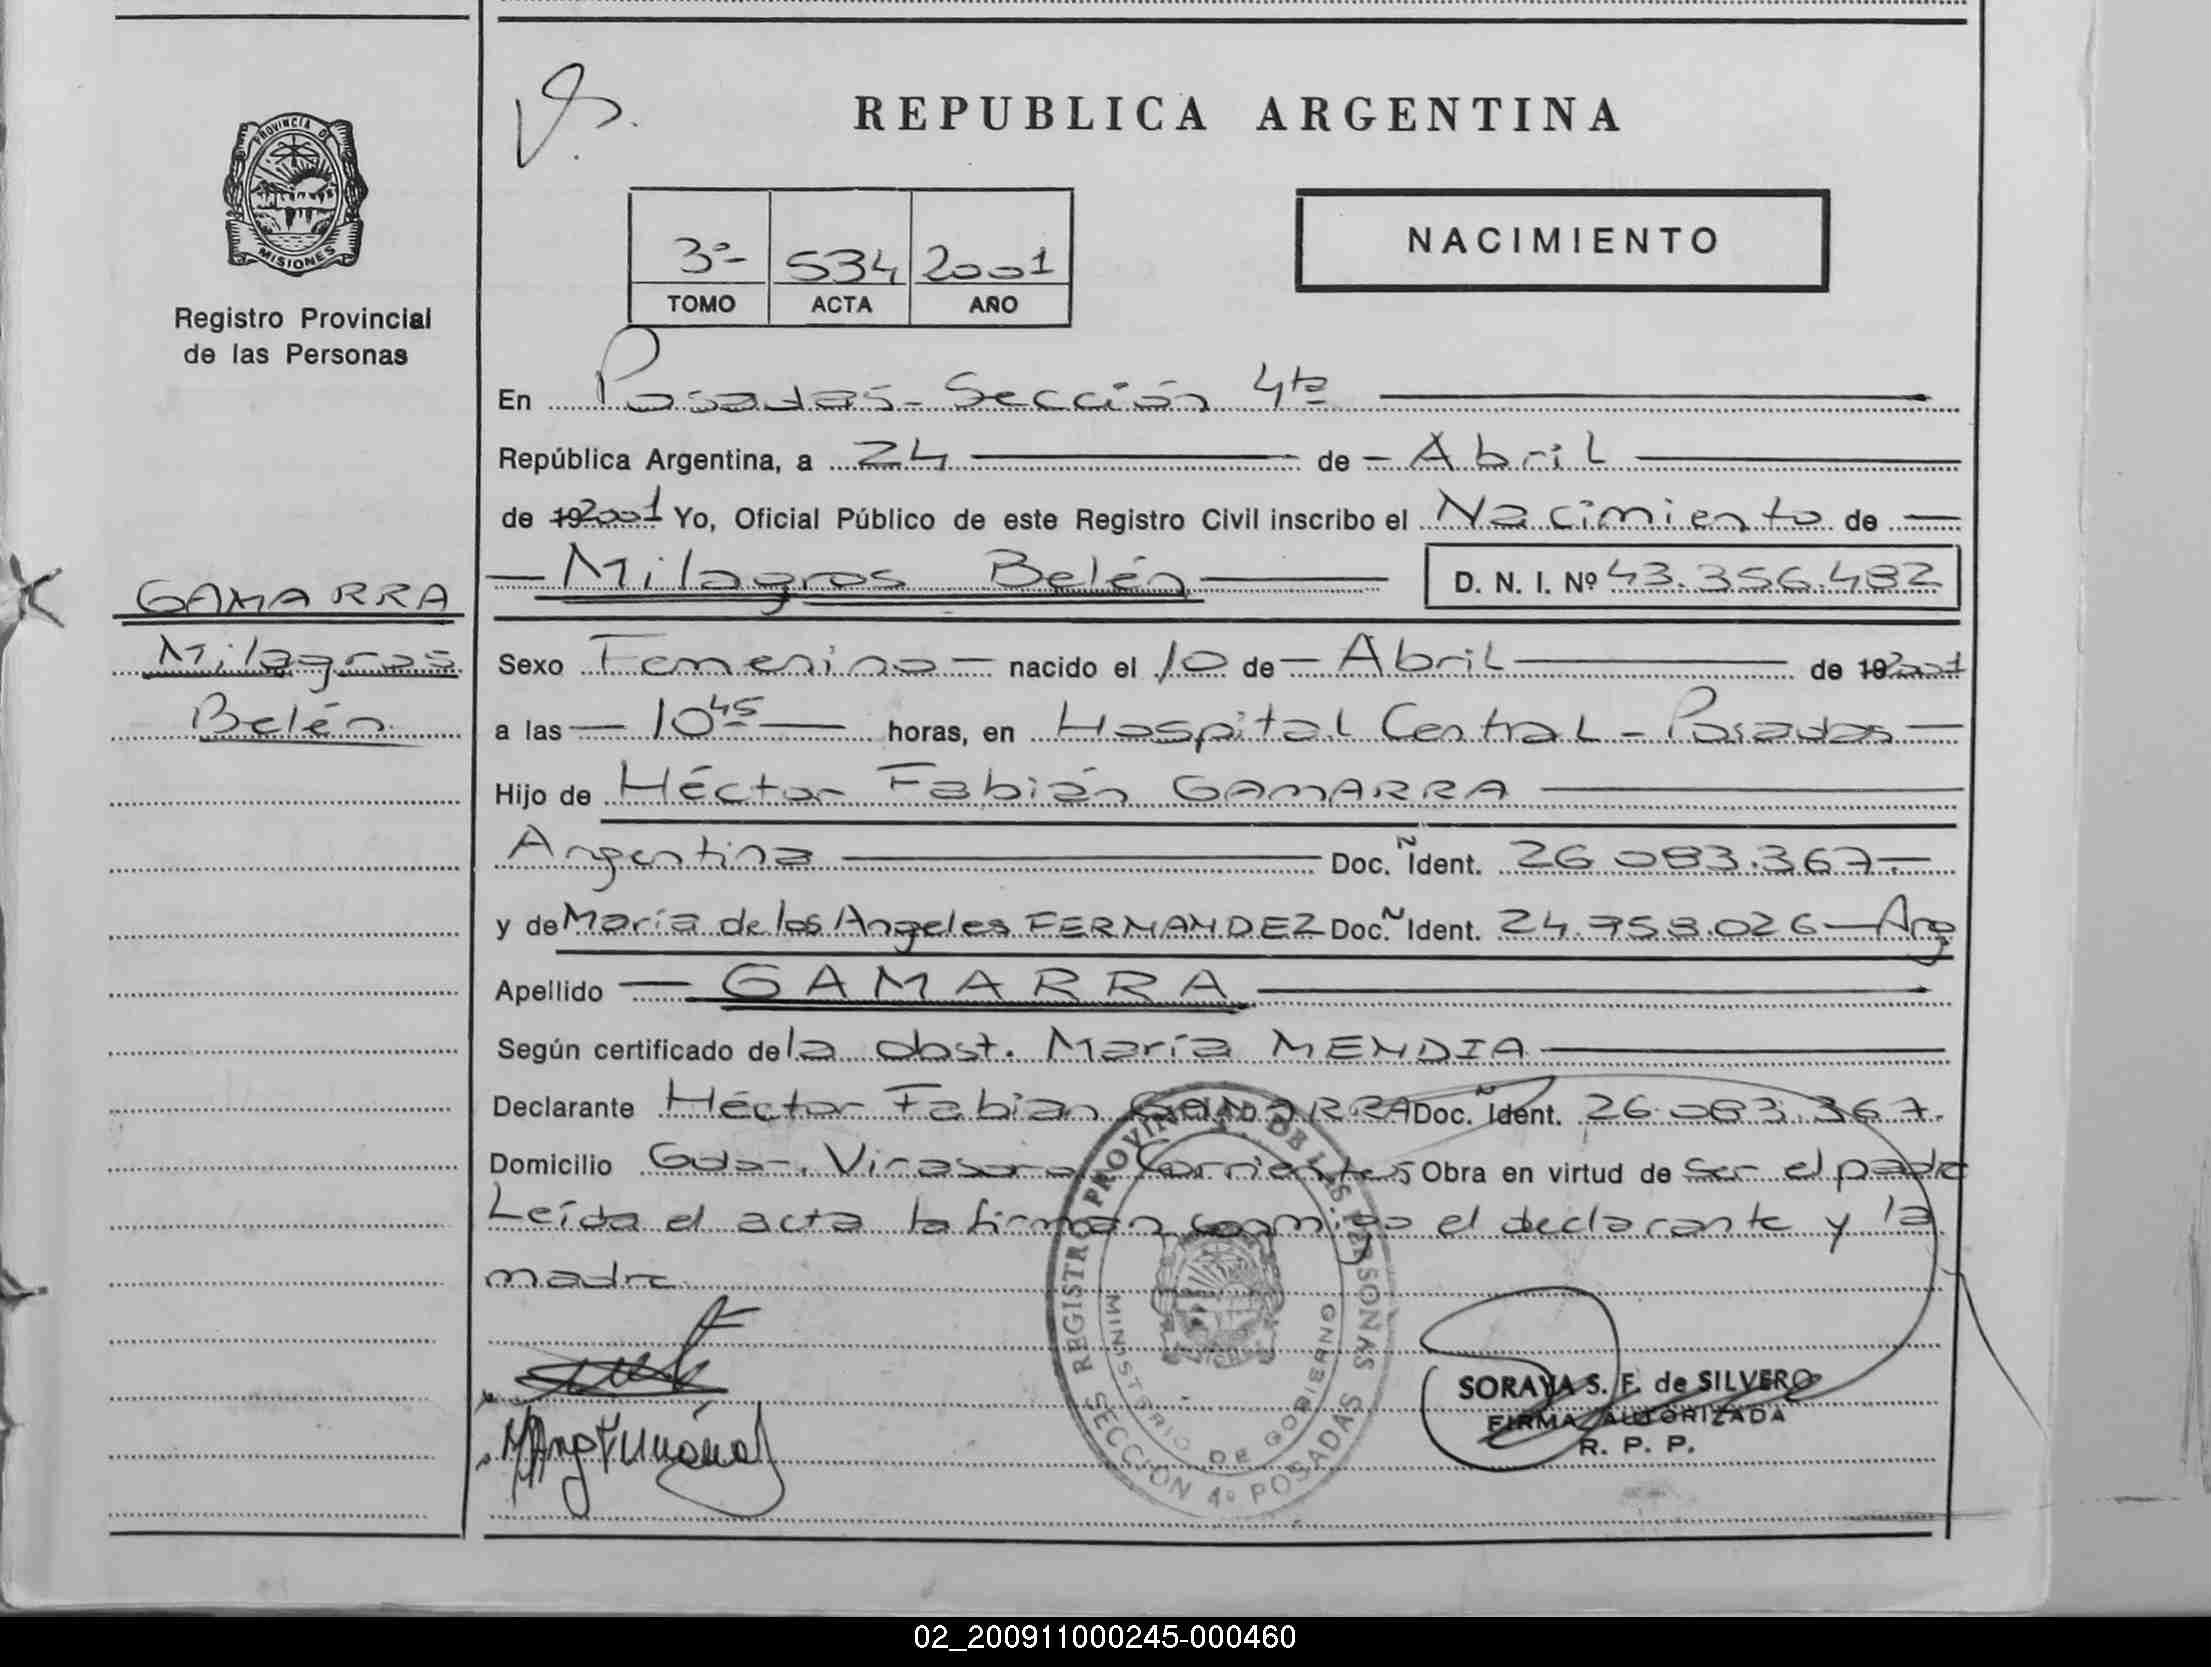 PROVINCIA DE
MISIONES
Registro Provincial
de las Personas
GAMARRA
Milagros
Belén
REPUBLICA ARGENTINA
3º 534 2001
TOMO ACTA AÑO
NACIMIENTO
En Posadas - Sección 4ta
República Argentina, a 24 de Abril
de 19 2001 Yo, Oficial Público de este Registro Civil inscribo el Nacimiento de
Milagros Belén D. N. I. Nº 43.356.482
Sexo Femenino nacido el 10 de Abril de 19 2001
a las 10 45 horas, en Hospital Central - Posadas
Hijo de Héctor Fabián GAMARRA
Argentina Doc. Ñ Ident. 26.083.367.-
y de María de los Angeles FERNANDEZ Doc. Ñ Ident. 24.758.026 - Arg
Apellido GAMARRA
Según certificado de la obst. María MENDIA
Declarante Héctor Fabian GAMARRA Doc. Ñ Ident. 26.083.367.
Domicilio Gdor. Virasoro Corrientes Obra en virtud de ser el padre
Leída el acta la firman conmigo el declarante y la
madre
REGISTRO PROVINCIAL DE LAS PERSONAS
MINISTERIO DE GOBIERNO
SECCION 4º POSADAS
SORAYA S. F. de SILVERO
FIRMA AUTORIZADA
R. P. P.
02_200911000245-000460